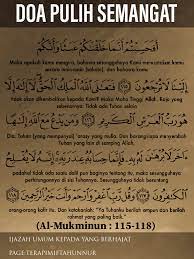 DOA PULIH SEMANGAT
أَفَحَسِبْتُمْ أَنَّمَا خَلَقْنَاكُمْ عَبَثًا وَأَنَّكُمْ
Maka apakah kamu mengira, bahawa sesungguhnya Kami menciptakan kamu
secara main-main (sahaja), dan bahawa kamu
إِلَيْنَا لَا تُرْجَعُونَ ١١٥ فَتَعَالَى اللَّهُ الْمَلِكُ الْحَقُّ لَا إِلَٰهَ إِلَّا
tidak akan dikembalikan kepada Kami? Maka Maha Tinggi Allah, Raja yang
sebenarnya; Tidak ada Tuhan selain
هُوَ رَبُّ الْعَرْشِ الْكَرِيمِ ١١٦ وَمَن يَدْعُ مَعَ اللَّهِ إِلَٰهًا آخَرَ لَا
Dia; Tuhan (yang mempunyai) 'arasy yang mulia. Dan barangsiapa menyembah
Tuhan yang lain di samping Allah,
بُرْهَانَ لَهُ بِهِ فَإِنَّمَا حِسَابُهُ عِندَ رَبِّهِ إِنَّهُ لَا يُفْلِحُ
padahal tidak ada suatu dalil pun baginya tentang itu, maka sesungguhnya
perhitungannya di sisi Tuhannya. Sesungguhnya tidak beruntung
الْكَافِرُونَ ١١٧ وَقُل رَّبِّ اغْفِرْ وَارْحَمْ وَأَنتَ خَيْرُ الرَّاحِمِينَ ١١٨
orang-orang kafir itu. Dan Katakanlah: "Ya Tuhanku berilah ampun dan berilah
rahmat yang paling baik."
(Al-Mukminun : 115-118)
IJAZAH UMUM KEPADA YANG BERHAJAT
PAGE:TERAPIMIFTAHUNNUR